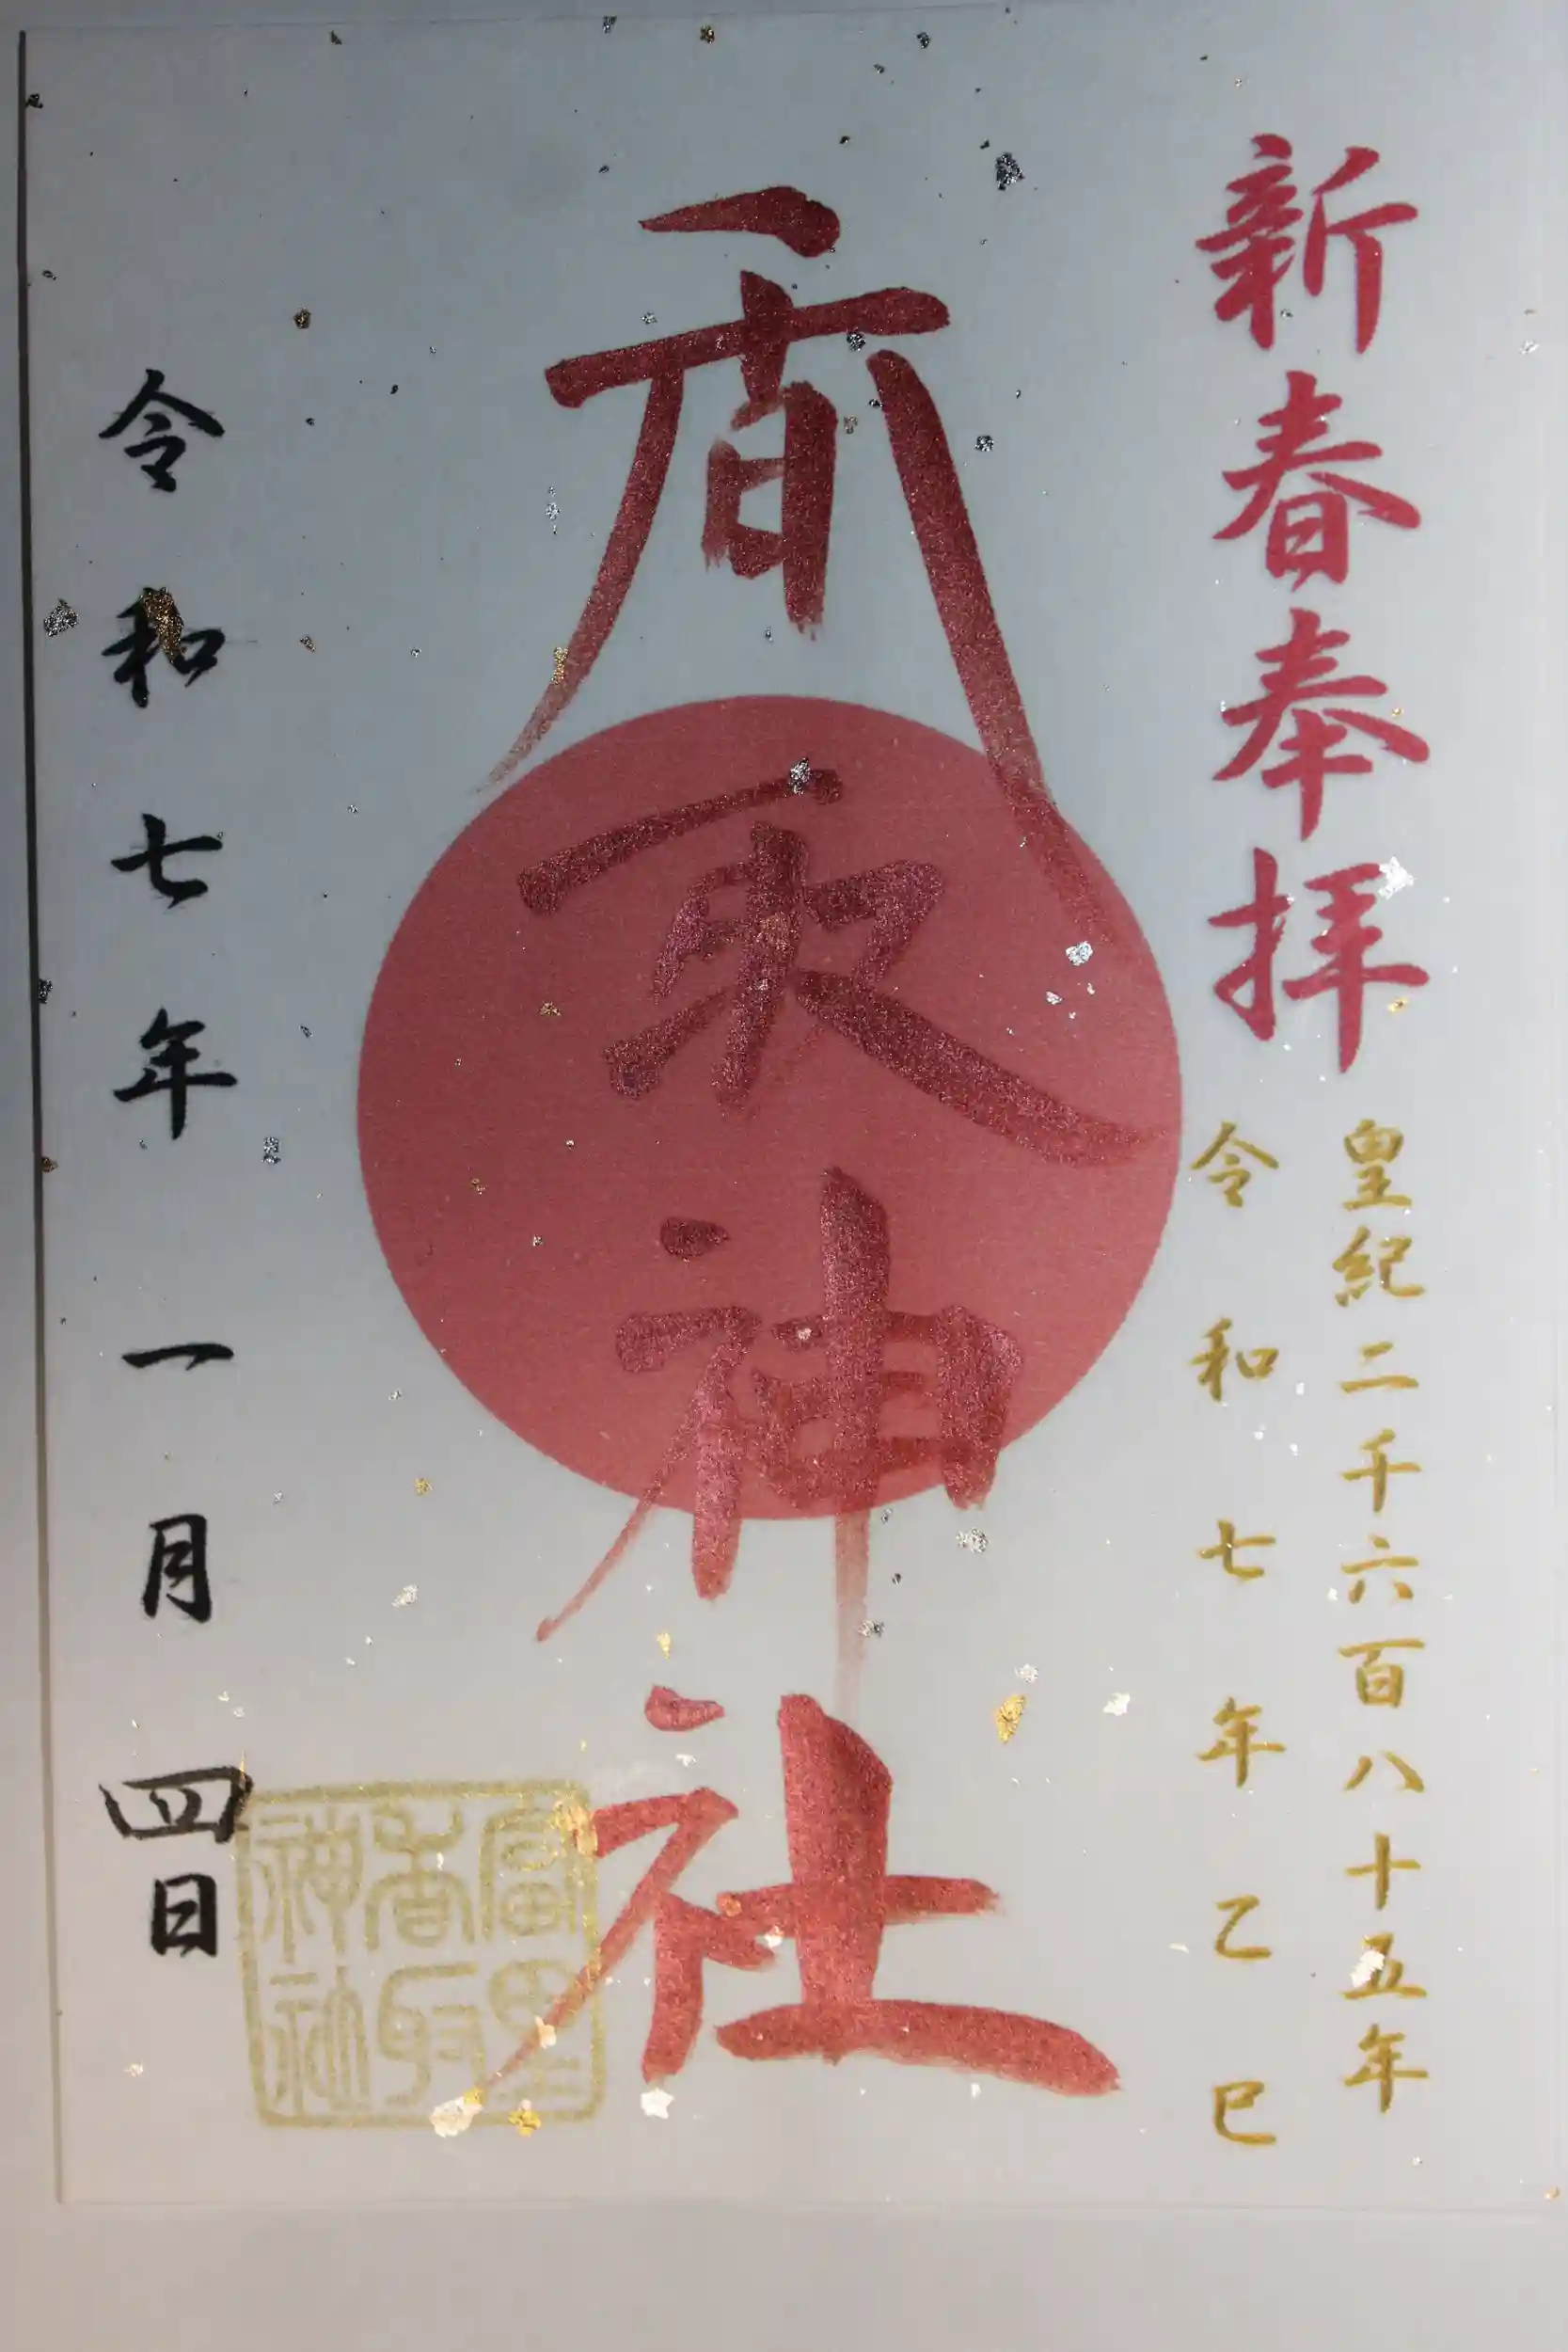 新春奉拝
皇紀二千六百八十五年
令和七年乙巳
香取神社
富里
香取
神社
令和七年一月四日